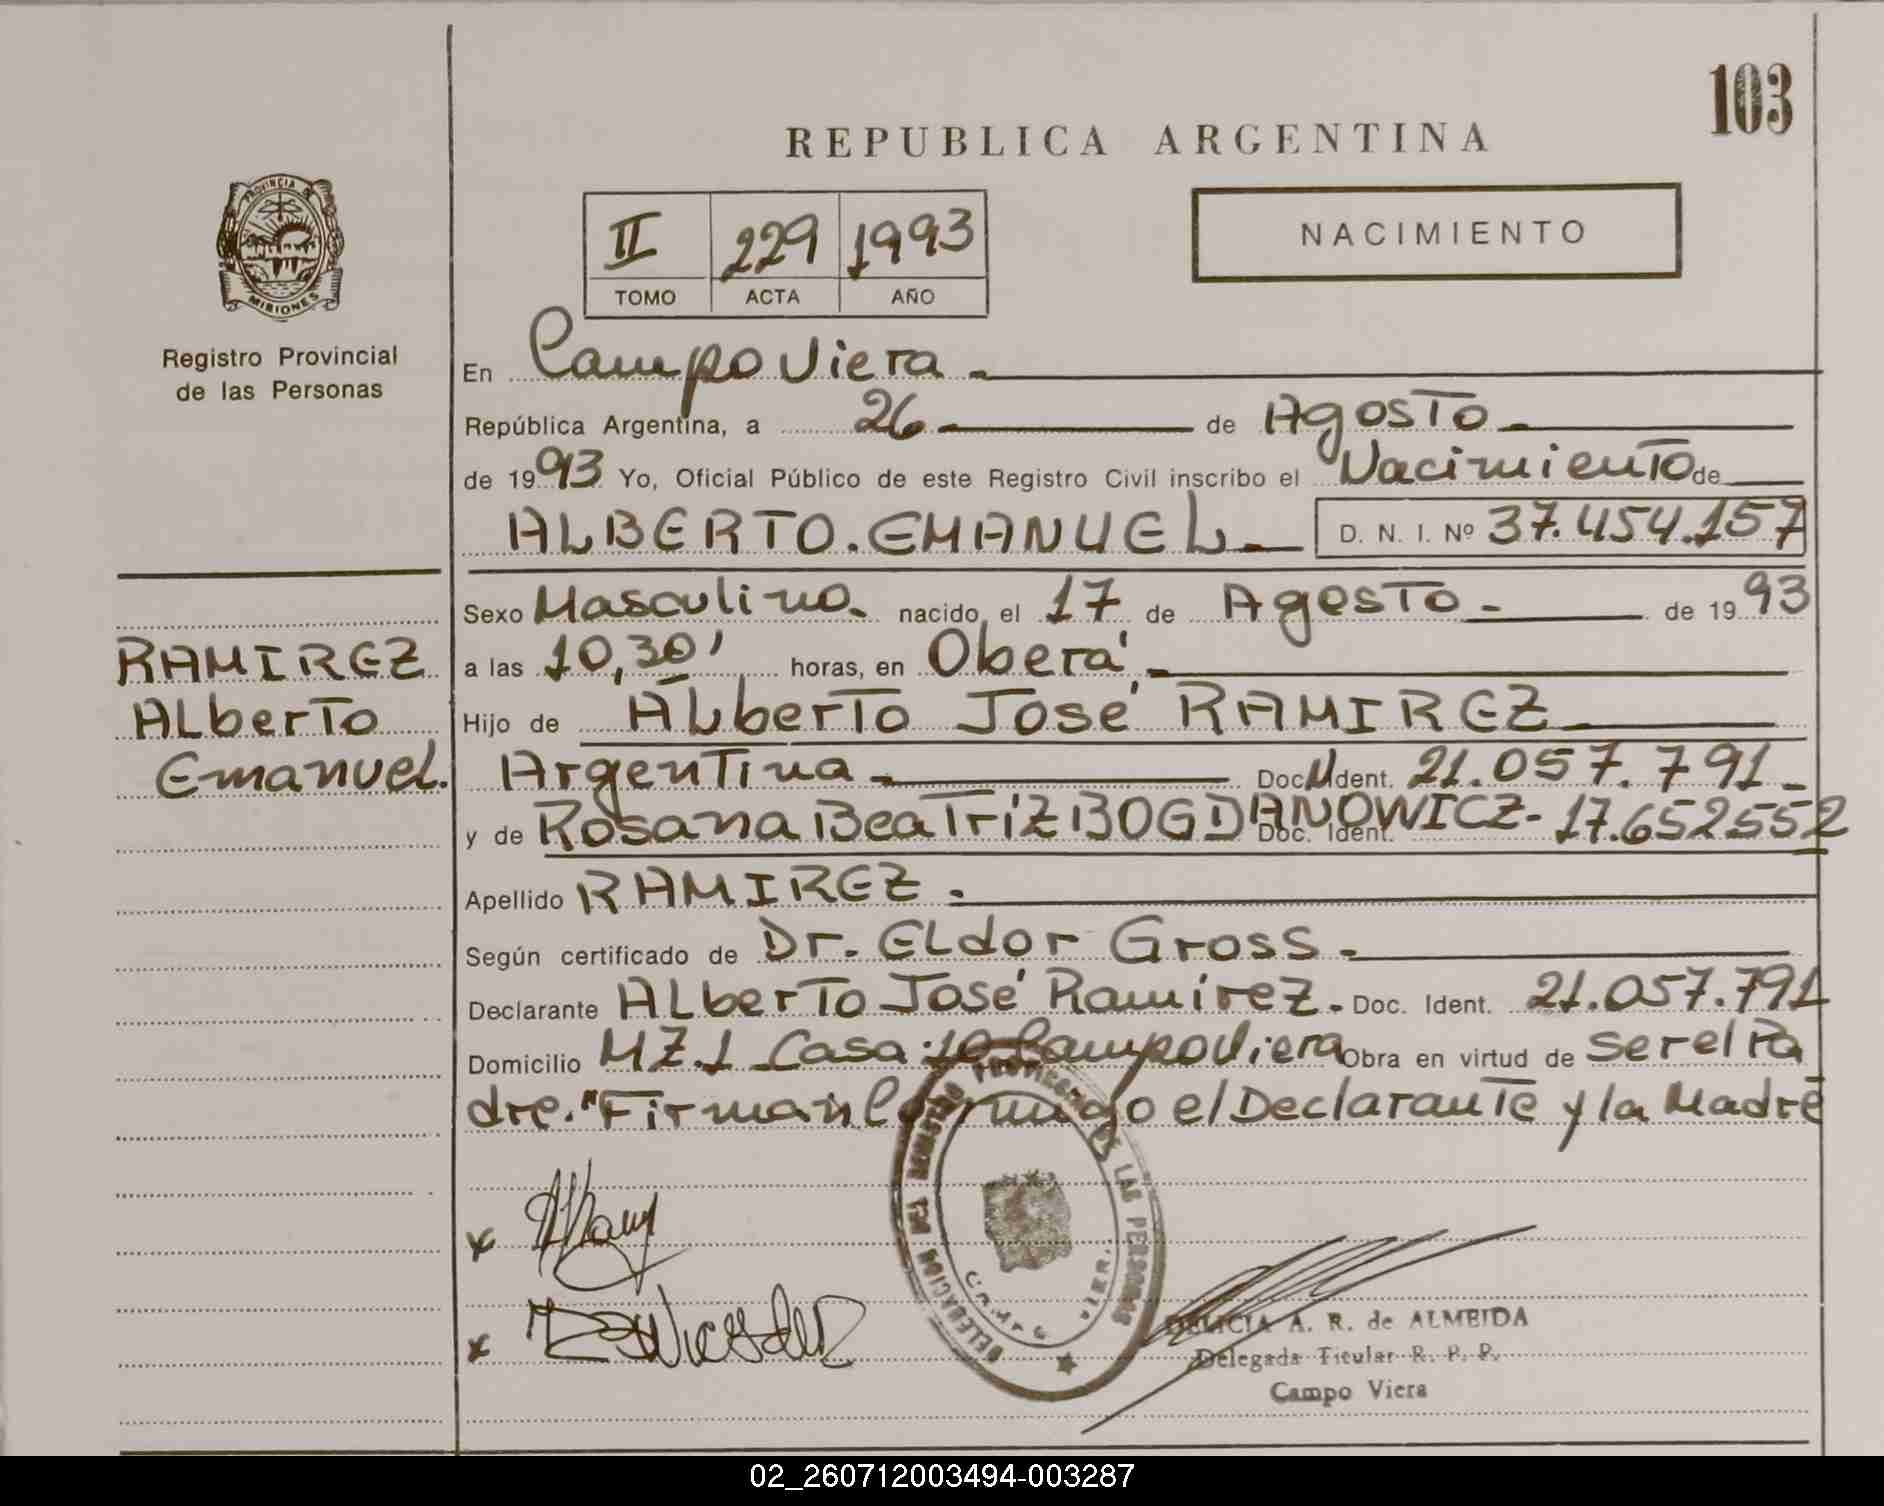 103
REPUBLICA ARGENTINA
PROVINCIA DE
MISIONES
Registro Provincial
de las Personas
II 229 1993
TOMO ACTA AÑO
NACIMIENTO
En Campo Viera
República Argentina, a 26 de Agosto
de 1993 Yo, Oficial Público de este Registro Civil inscribo el Nacimiento de
ALBERTO.EMANUEL D. N. I. Nº 37.454.157
RAMIREZ
Alberto
Emanuel.
Sexo Masculino. nacido el 17 de Agosto de 1993
a las 10,30' horas, en Oberá
Hijo de Alberto José RAMIREZ
Argentina Doc. Ident. 21.057.791
y de Rosana Beatriz BOGDANOWICZ- Doc. Ident. 17.652552
Apellido RAMIREZ.
Según certificado de Dr. Eldor Gross.
Declarante Alberto José Ramírez. Doc. Ident. 21.057.791
Domicilio MZ.1 Casa 10 Campo Viera Obra en virtud de ser el Pa
dre."Firman Conmigo el Declarante y la Madre
DELEGACION DEL REGISTRO PROVINCIAL DE LAS PERSONAS
CAMPO VIERA
DELICIA A. R. de ALMEIDA
Delegada Titular R. P. P.
Campo Viera
02_260712003494-003287